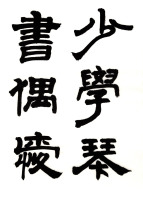 少學琴
書偶愛